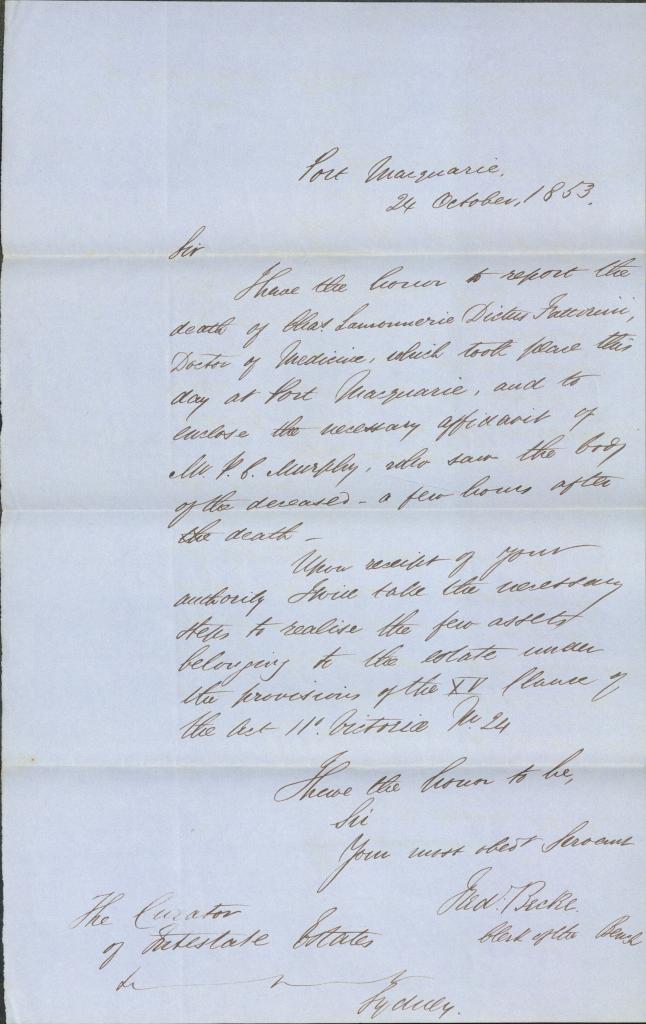 Port Macquarie,
24 October, 1853.
Sir
I have the honor to report the
death of Chas. Lamonnerie Dictus Fattorini,
Doctor of Medicine, which took place this
day at Port Macquarie, and to
enclose the necessary affidavit of
Mr. P. C. Murphy, who saw the body
of the deceased - a few hours after
the death -
Upon receipt of your
authority I will take the necessary
steps to realise the few assets
belonging to the estate under
the provisions of the XV Clause of
the Act 11o. Victoria No. 24
I have the honor to be,
Sir
Your most obedt Servant
Fredk. Becke.
Clerk of the Bench
The Curator
of Intestate Estates
Sydney.